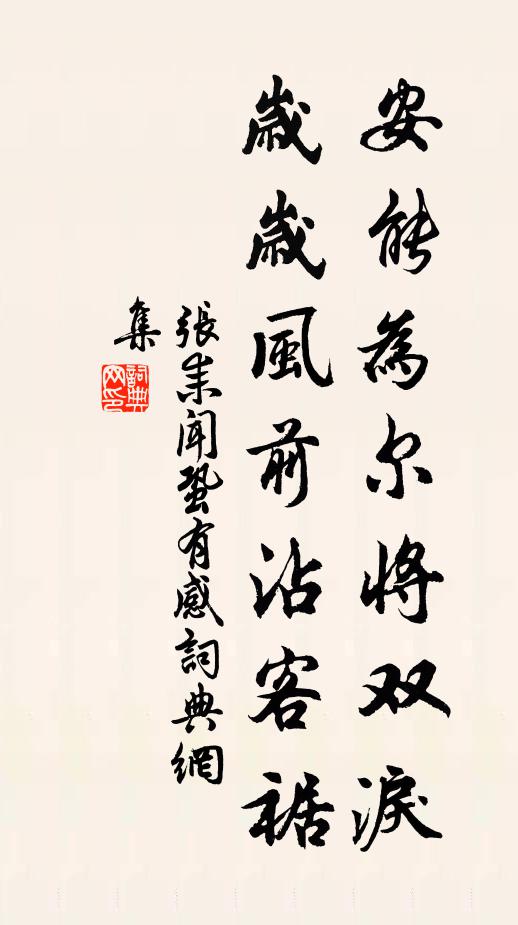 安能為尔將双淚
歲歲風前沾客裾
張耒聞蛩有感詞典網
集
詞典网印